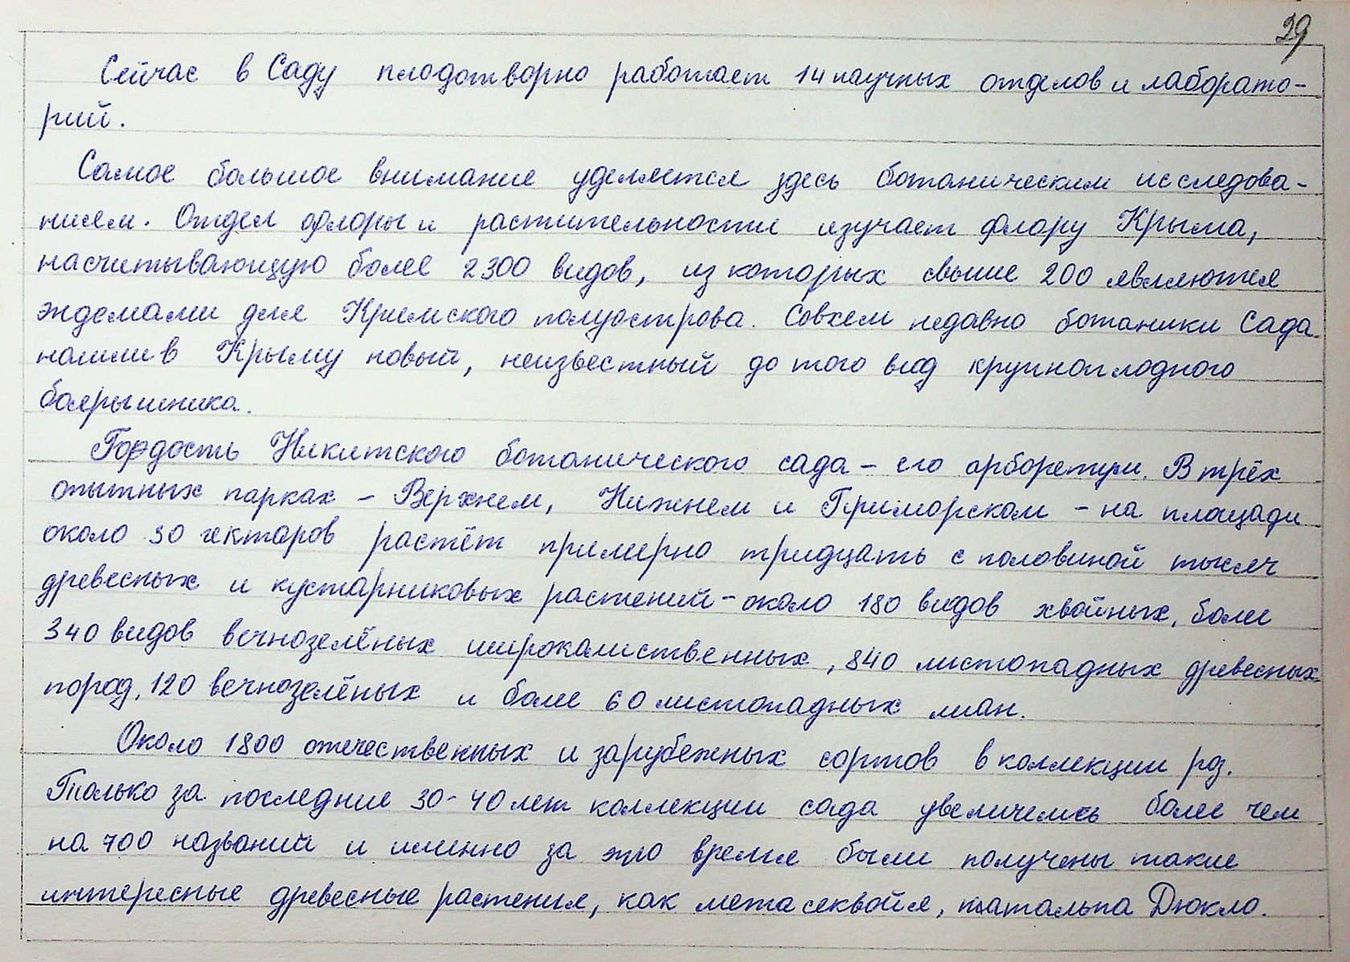 29
Сейчас в Саду плодотворно работает 14 научных отделов и лаборато-
рий.
Самое большое внимание уделяется здесь ботаническим исследова-
ниям. Отдел флоры и растительности изучает флору Крыма,
насчитывающую более 2300 видов, из которых свыше 200 являются
эндемами для Кримского полуострова. Совсем недавно ботаники Сада
нашли в Крыму новый, неизвестный до того вид крупноплодного
боярышника.
Гордость Никитского ботанического сада - его арборетум. В трёх
опытных парках - Верхнем, Нижнем и Приморском - на площади
около 30 гектаров растёт примерно тридцать с половиной тысяч
древесных и кустарниковых растений - около 180 видов хвойных, более
340 видов вечнозелёных широколиственных, 840 листопадных древесных
пород, 120 вечнозелёных и более 60 листопадных лиан.
Около 1800 отечественных и зарубежных сортов в коллекции роз.
Только за последние 30-40 лет коллекции сада увеличились более чем
на 700 названий и именно за это время были получены такие
интересные древесные растения, как метасеквойя, катальпа Дюкло.